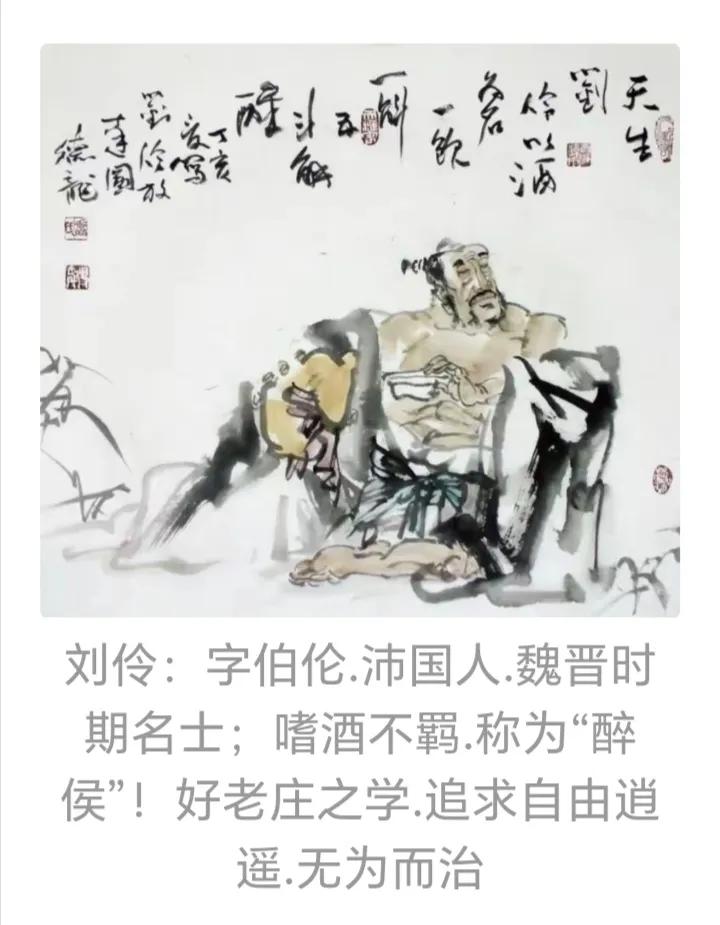 天生
劉
伶以酒
為名
一飲
一斛
五
斗解
丁亥
夏寫
劉伶放
達圖
德龍
刘伶：字伯伦.沛国人.魏晋时
期名士；嗜酒不羁.称为“醉
侯”！好老庄之学.追求自由逍
遥.无为而治